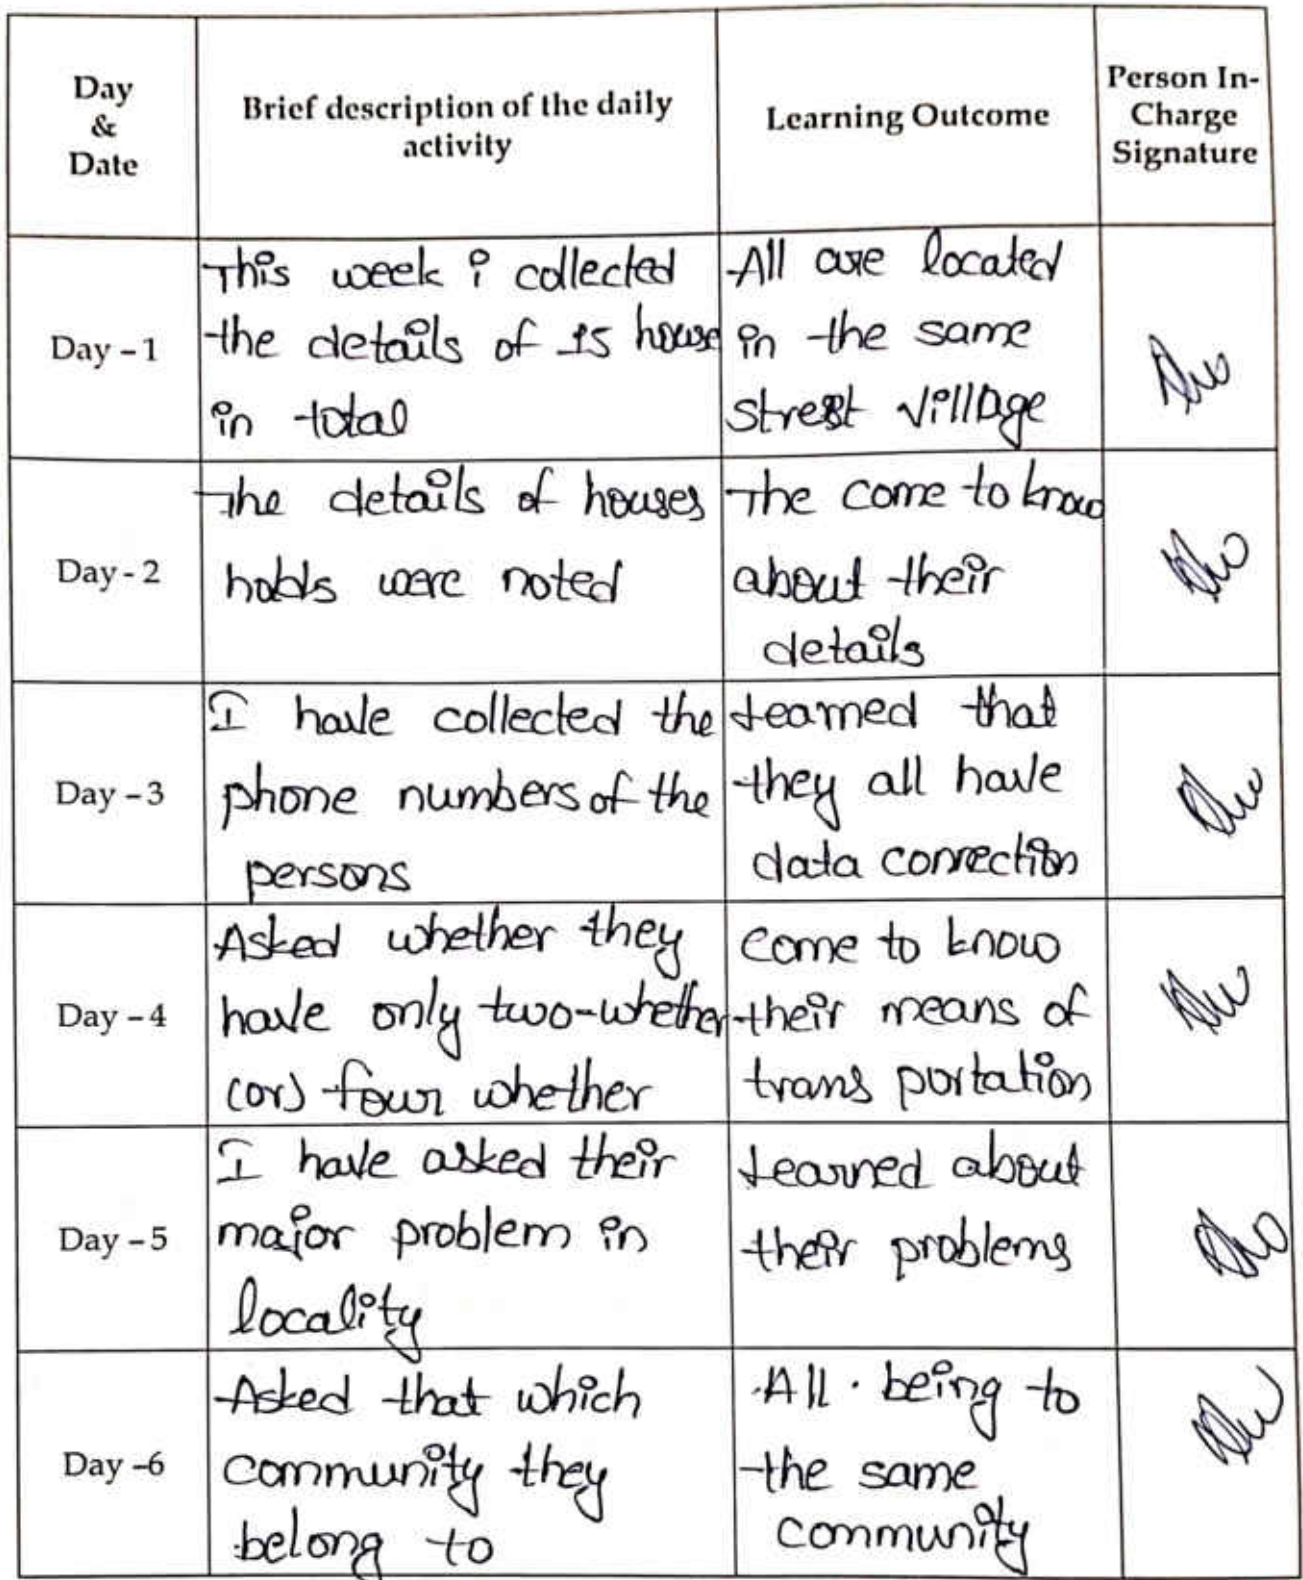 Day
&
Date
Brief description of the daily
activity
Learning Outcome
Person In-
Charge
Signature
Day - 1
This week i collected
the details of 15 house
in total
All are located
in the same
street village
Day - 2
The details of houses
holds were noted
The come to know
about their
details
Day - 3
I have collected the
phone numbers of the
persons
Learned that
they all have
data connection
Day - 4
Asked whether they
have only two-whether
(or) four whether
come to know
their means of
trans portation
Day - 5
I have asked their
major problem in
locality
Learned about
their problems
Day -6
Asked that which
community they
belong to
All being to
the same
community